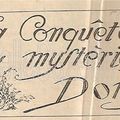 a Conquête
mystéri
Dom